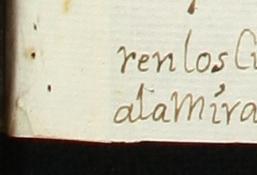 ren los Cu
ala Mira